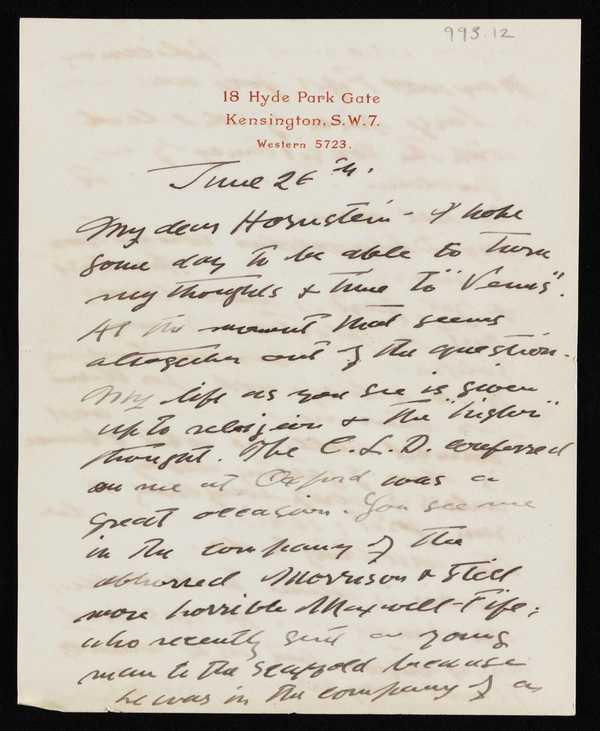 993.12
18 Hyde Park Gate
Kensington, S.W.7.
Western 5723.
June 26th.
My dear Hornstein - I hope
some day to be able to turn
my thoughts & time to "Venus".
At the moment that seems
altogether out of the question.
My life as you see is given
up to religion & the "higher"
thought. The C.L.D. conferred
on me at Oxford was a
great occasion. You see me
in the company of the
abhorred Morrison & still
more horrible Maxwell-Fife;
who recently sent a young
man to the scaffold because
he was in the company of a